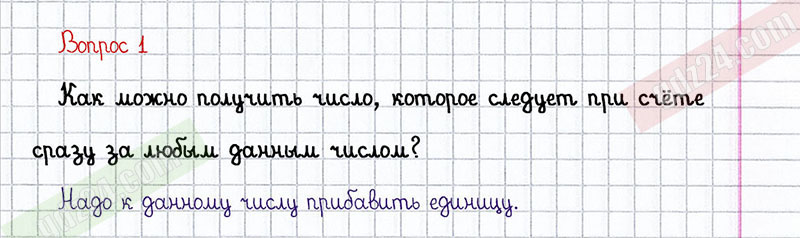 Вопрос 1
Как можно получить число, которое следует при счёте
сразу за любым данным числом?
Надо к данному числу прибавить единицу.